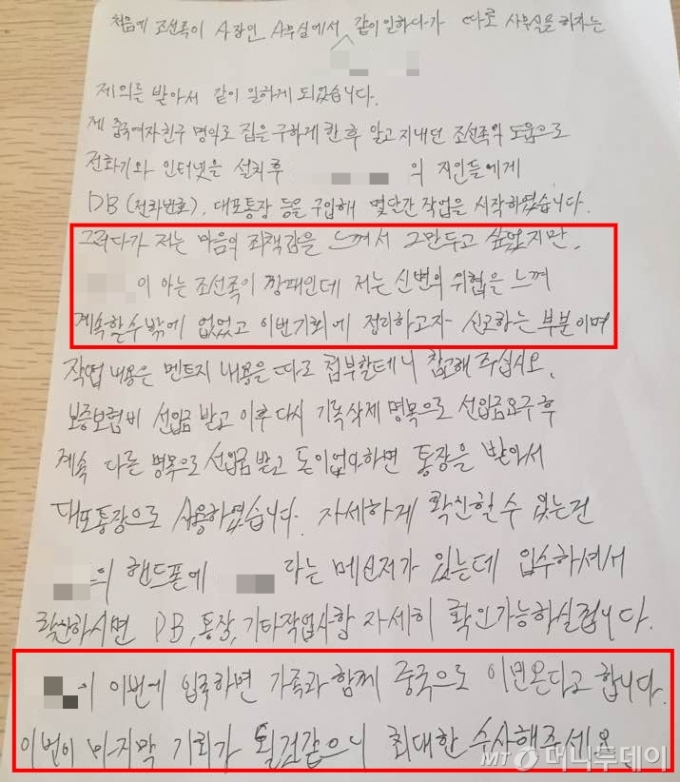 처음에 조선족이 A장인 A무실에서 같이 일하다가 따로 사무실을 하자는
제의를 받아서 같이 일하게 되었습니다.
제 중국여자친구 명의로 집을 구하게 한 후 알고지내던 조선족의 도움으로
전화기와 인터넷을 설치후 의 지인들에게
DB(전화번호), 대포통장 등을 구입해 몇달간 작업을 시작하였습니다.
그러다가 저는 마음의 죄책감을 느껴서 그만두고 싶었지만,
이 아는 조선족이 깡패인데 저는 신변의 위협을 느껴
계속할수밖에 없었고 이번기회에 정리하고자 신고하는 부분이며
작업 내용은 멘트지 내용을 따로 첨부할테니 참고해 주십시오.
보증보험비 선입금 받고 이후 다시 기록삭제 명목으로 선입금요구후
계속 다른 명목으로 선입금 받고 돈이없다하면 통장을 받아서
대포통장으로 사용하였습니다. 자세하게 확신할수 있는건
의 핸드폰에 라는 메신저가 있는데 입수하셔서
확인하시면 DB, 통장, 기타작업사항 자세히 확인가능하실겁니다.
이 이번에 입국하면 가족과 함께 중국으로 이민온다고 합니다.
이번이 마지막 기회가 될것같으니 최대한 수사해주세요
MT 머니투데이